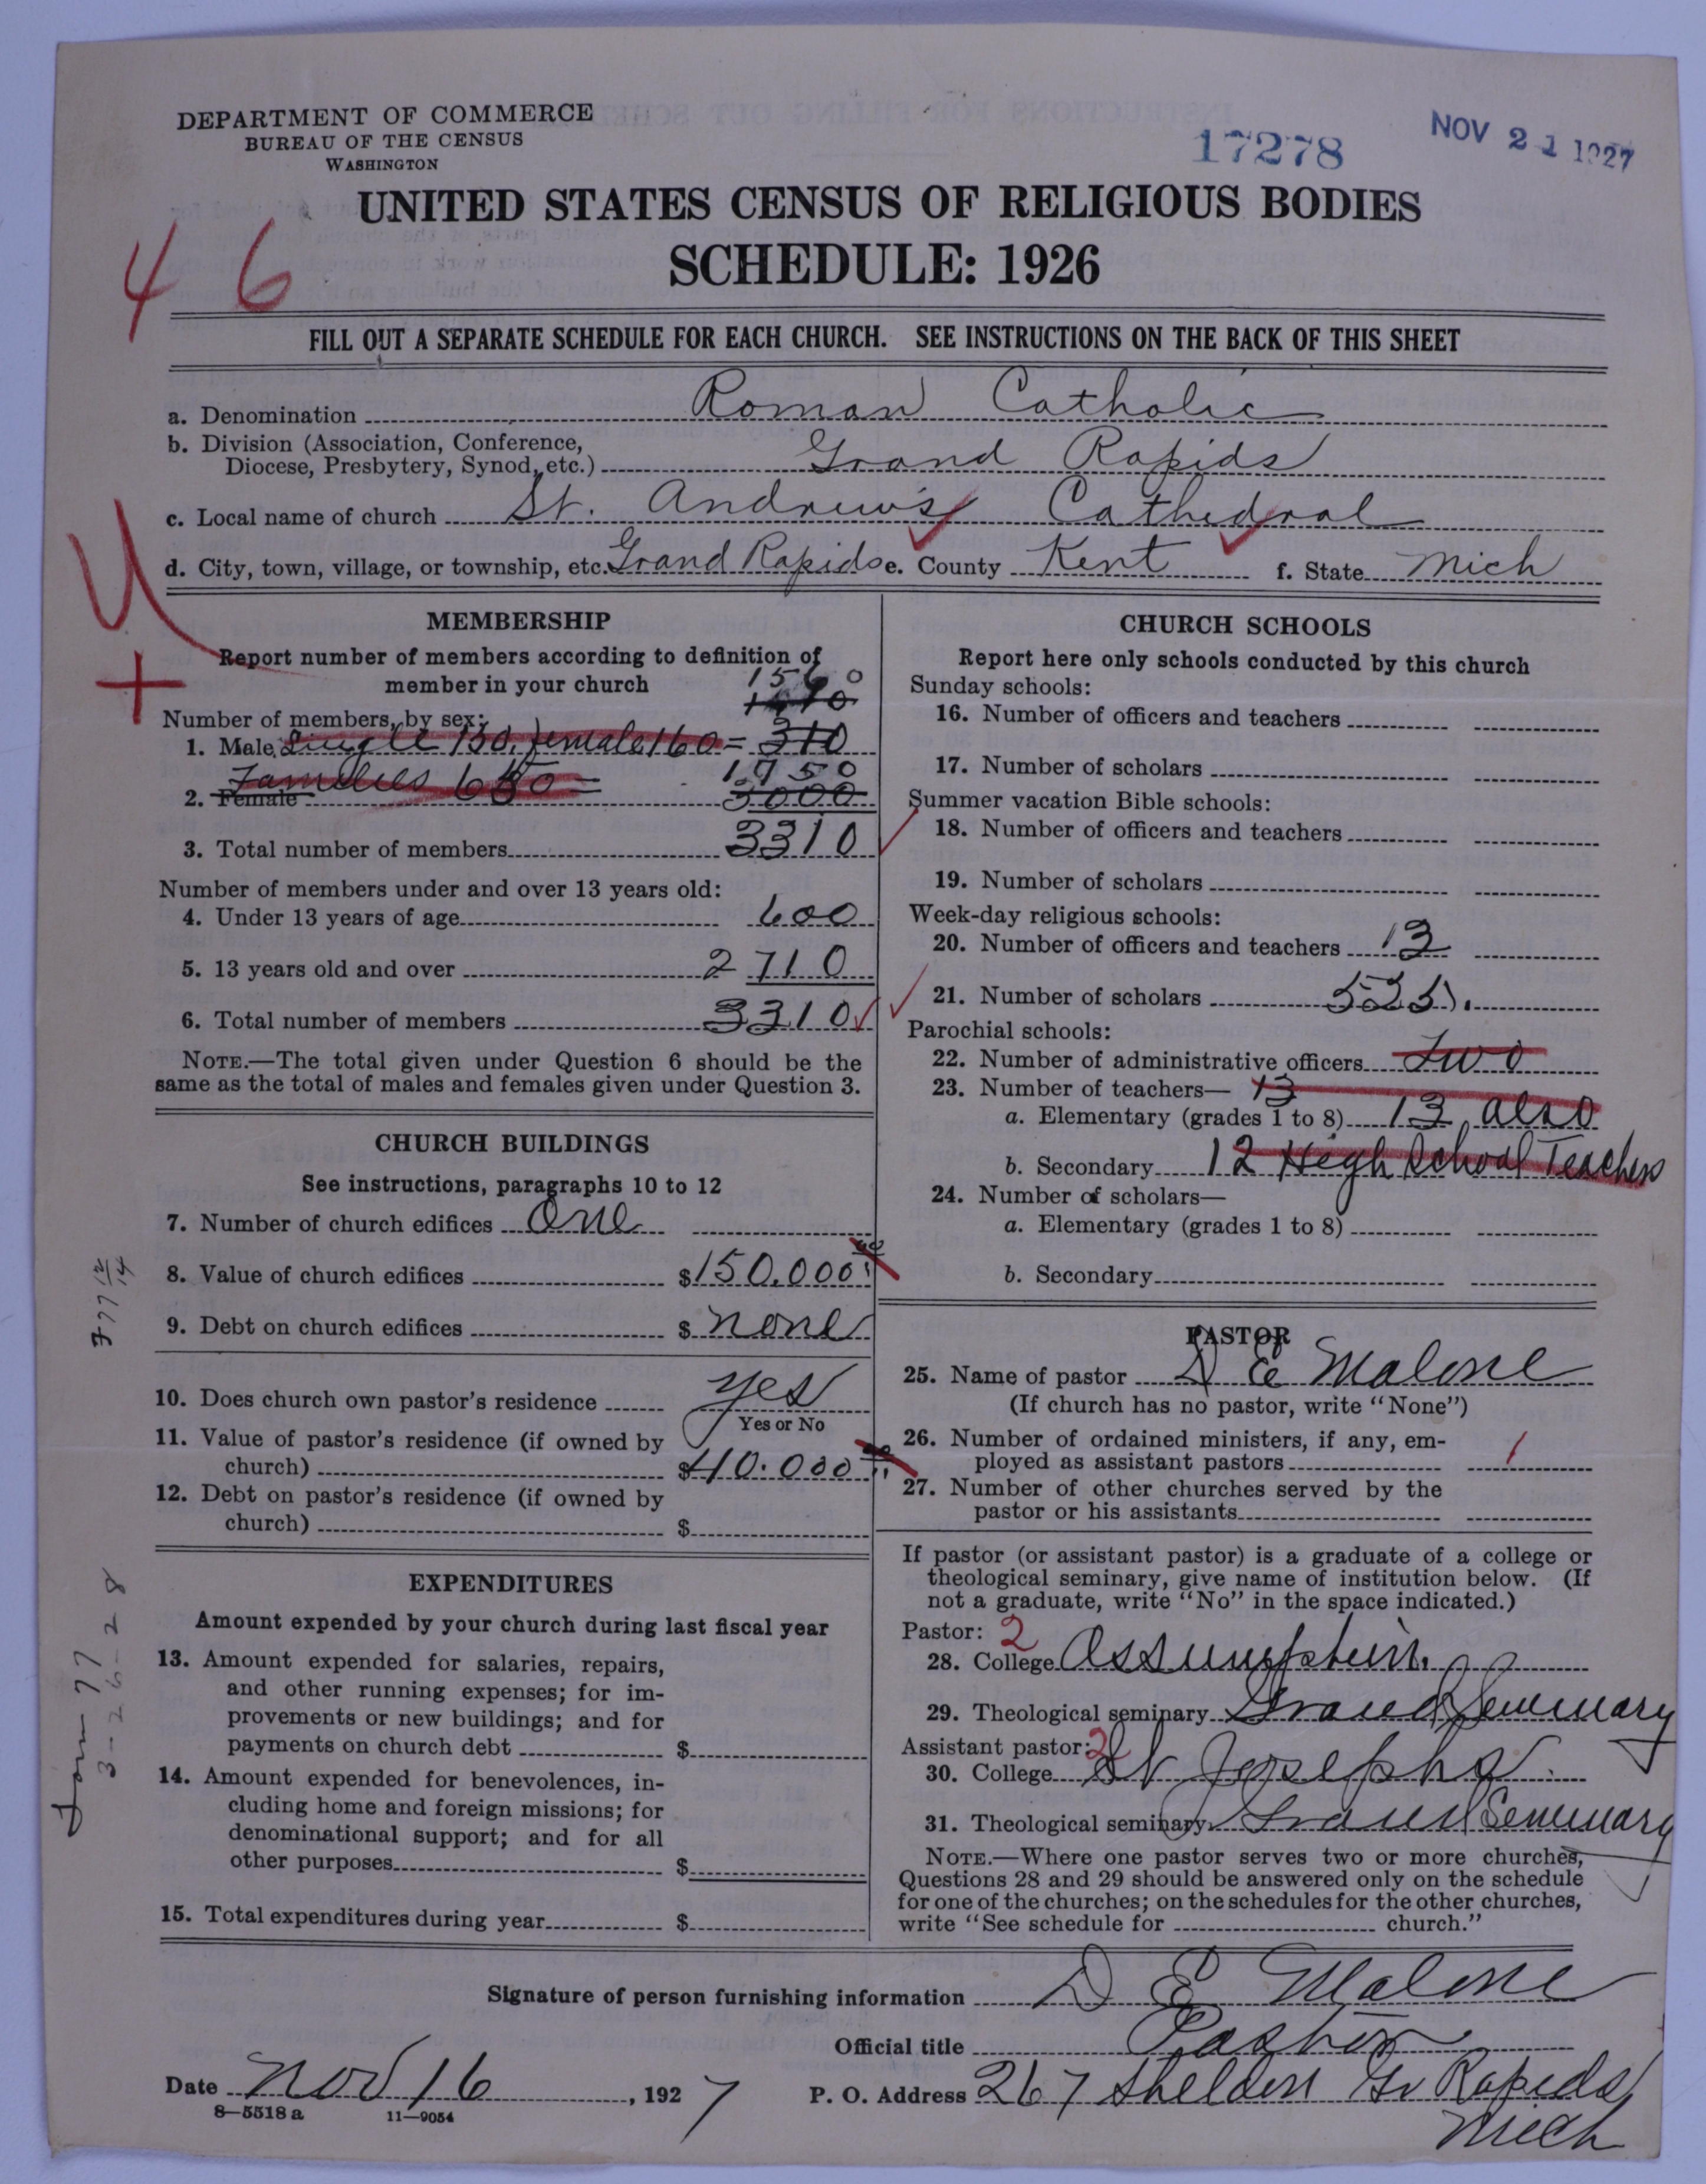 DEPARTMENT OF COMMERCE
BUREAU OF THE CENSUS
WASHINGTON
17278
NOV 21 1927
UNITED STATES CENSUS OF RELIGIOUS BODIES
SCHEDULE: 1926
4 6
FILL OUT A SEPARATE SCHEDULE FOR EACH CHURCH. SEE INSTRUCTIONS ON THE BACK OF THIS SHEET
a. Denomination Roman Catholic
b. Division (Association, Conference,
Diocese, Presbytery, Synod, etc.) Grand Rapids
c. Local name of church St. Andrew's Cathedral
d. City, town, village, or township, etc. Grand Rapids e. County Kent f. State Mich
MEMBERSHIP
Report number of members according to definition of
member in your church
1560
Number of members, by sex:
1. Male Single 150, female 160 = 310
Families 650 = 1750
2. Female 3000
3. Total number of members 3310
Number of members under and over 13 years old:
4. Under 13 years of age 600
5. 13 years old and over 2710
6. Total number of members 3310
NOTE.—The total given under Question 6 should be the
same as the total of males and females given under Question 3.
CHURCH BUILDINGS
See instructions, paragraphs 10 to 12
7. Number of church edifices One
8. Value of church edifices $150.000
9. Debt on church edifices $ none
10. Does church own pastor's residence yes
Yes or No
11. Value of pastor's residence (if owned by
church) $40.000
12. Debt on pastor's residence (if owned by
church) $
EXPENDITURES
Amount expended by your church during last fiscal year
13. Amount expended for salaries, repairs,
and other running expenses; for im-
provements or new buildings; and for
payments on church debt $
14. Amount expended for benevolences, in-
cluding home and foreign missions; for
denominational support; and for all
other purposes $
15. Total expenditures during year $
CHURCH SCHOOLS
Report here only schools conducted by this church
Sunday schools:
16. Number of officers and teachers
17. Number of scholars
Summer vacation Bible schools:
18. Number of officers and teachers
19. Number of scholars
Week-day religious schools:
20. Number of officers and teachers 13
21. Number of scholars 525.
Parochial schools:
22. Number of administrative officers two
23. Number of teachers— 13
a. Elementary (grades 1 to 8) 13 also
b. Secondary 12 High School Teachers
24. Number of scholars—
a. Elementary (grades 1 to 8)
b. Secondary
PASTOR
25. Name of pastor D E Malone
(If church has no pastor, write "None")
26. Number of ordained ministers, if any, em-
ployed as assistant pastors 1
27. Number of other churches served by the
pastor or his assistants
If pastor (or assistant pastor) is a graduate of a college or
theological seminary, give name of institution below. (If
not a graduate, write "No" in the space indicated.)
Pastor: 2
28. College Assumption.
29. Theological seminary Grand Seminary
Assistant pastor: 2
30. College St Josephs
31. Theological seminary Grand Seminary
NOTE.—Where one pastor serves two or more churches,
Questions 28 and 29 should be answered only on the schedule
for one of the churches; on the schedules for the other churches,
write "See schedule for church."
Signature of person furnishing information D E Malone
Official title Pastor
Date Nov 16, 1927 P. O. Address 267 Sheldon Gr Rapids
Mich
8—5518 a 11—9054
3-26-28